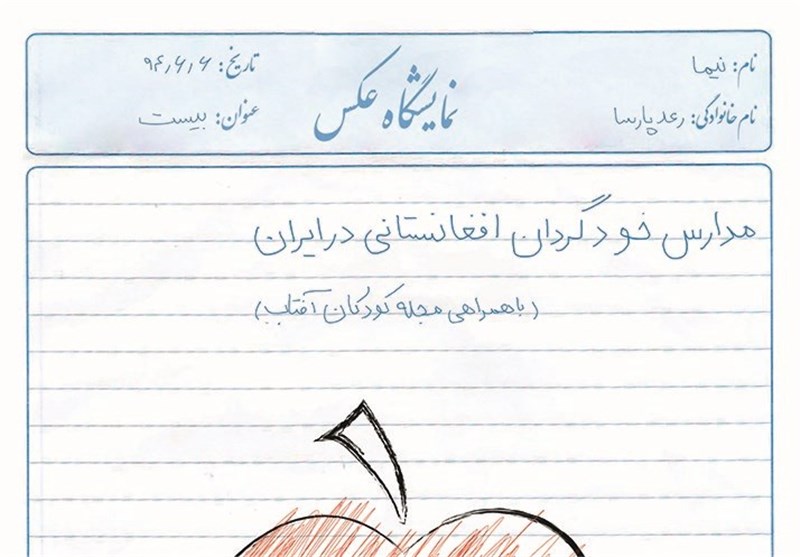 نام: نیما
نام خانوادگی: رعدپارسا
نمایشگاه عکس
تاریخ: ۹۴٫۶٫۶
عنوان: بیست
مدارس خودگردان افغانستانی در ایران
(با همراهی مجله کودکان آفتاب)